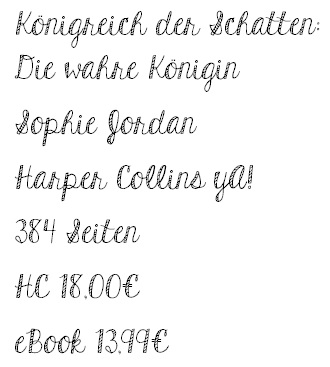 Königreich der Schatten:
Die wahre Königin
Sophie Jordan
Harper Collins yA!
384 Seiten
HC 18,00€
eBook 13,99€